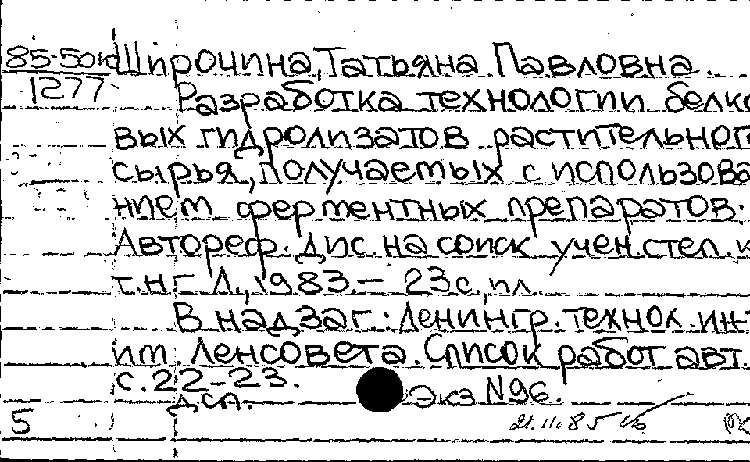 85-50к Широчина, Татьяна Павловна.
1277 Разработка технологии белко
вых гидролизатов растительног
сырья, получаемых с использова
нием ферментных препаратов.
Автореф. дис. на соиск учен. степ. к
т.н. Л., 1983. – 23 с., ил.
В надзаг.: Ленингр. технол. ин-
им. Ленсовета. Список работ авт.
с. 22-23.
ДСП. Экз N96.
5 21.11.85